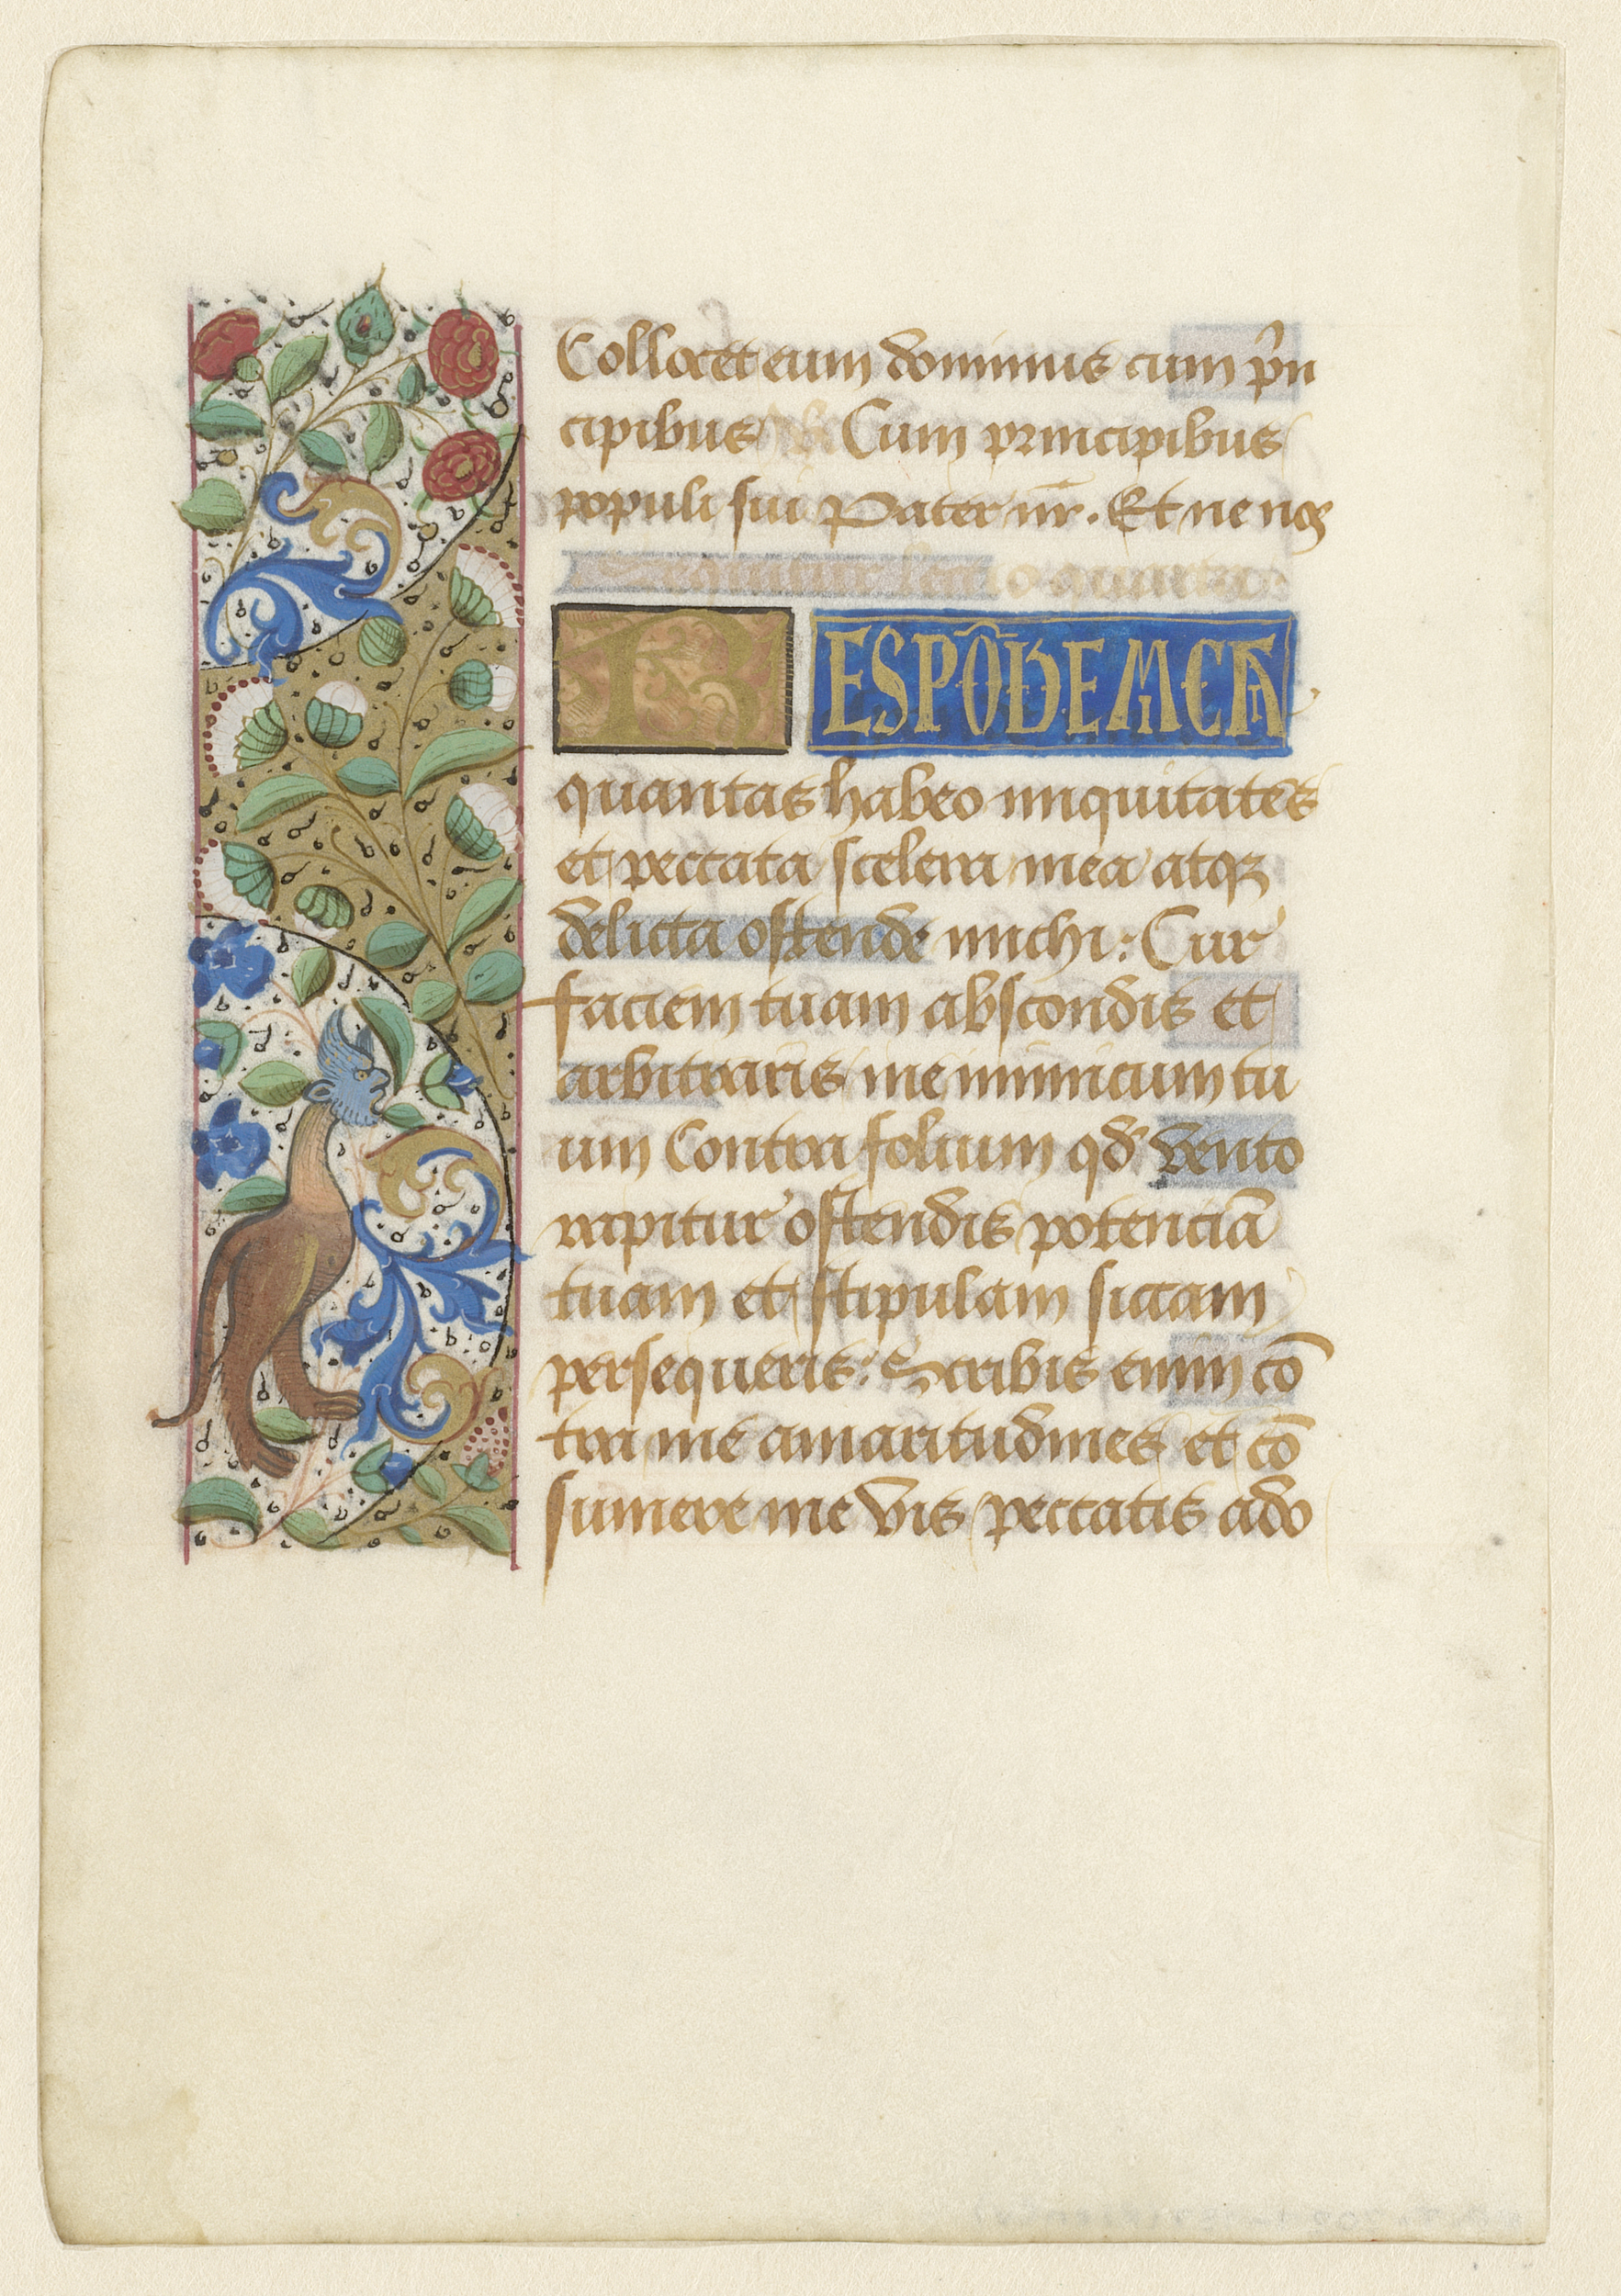 Collocet eum dominus cum pͥn
cipibus Cum principibus
populi sui Pater nr̄. Et ne nos
lectio quinta
RESPŌDE MICHI
quantas habeo iniquitates
et peccata scelera mea atqꝫ
delicta ostende michi: Cur
faciem tuam abscondis et
arbitraris me inimicum tu
um Contra folium qd̓ vento
rapitur ostendis potenciā
tuam et stipulam siccam
persequeris: Scribis enim cō
tra me amaritudines et cō
sumere me vis peccatis ado